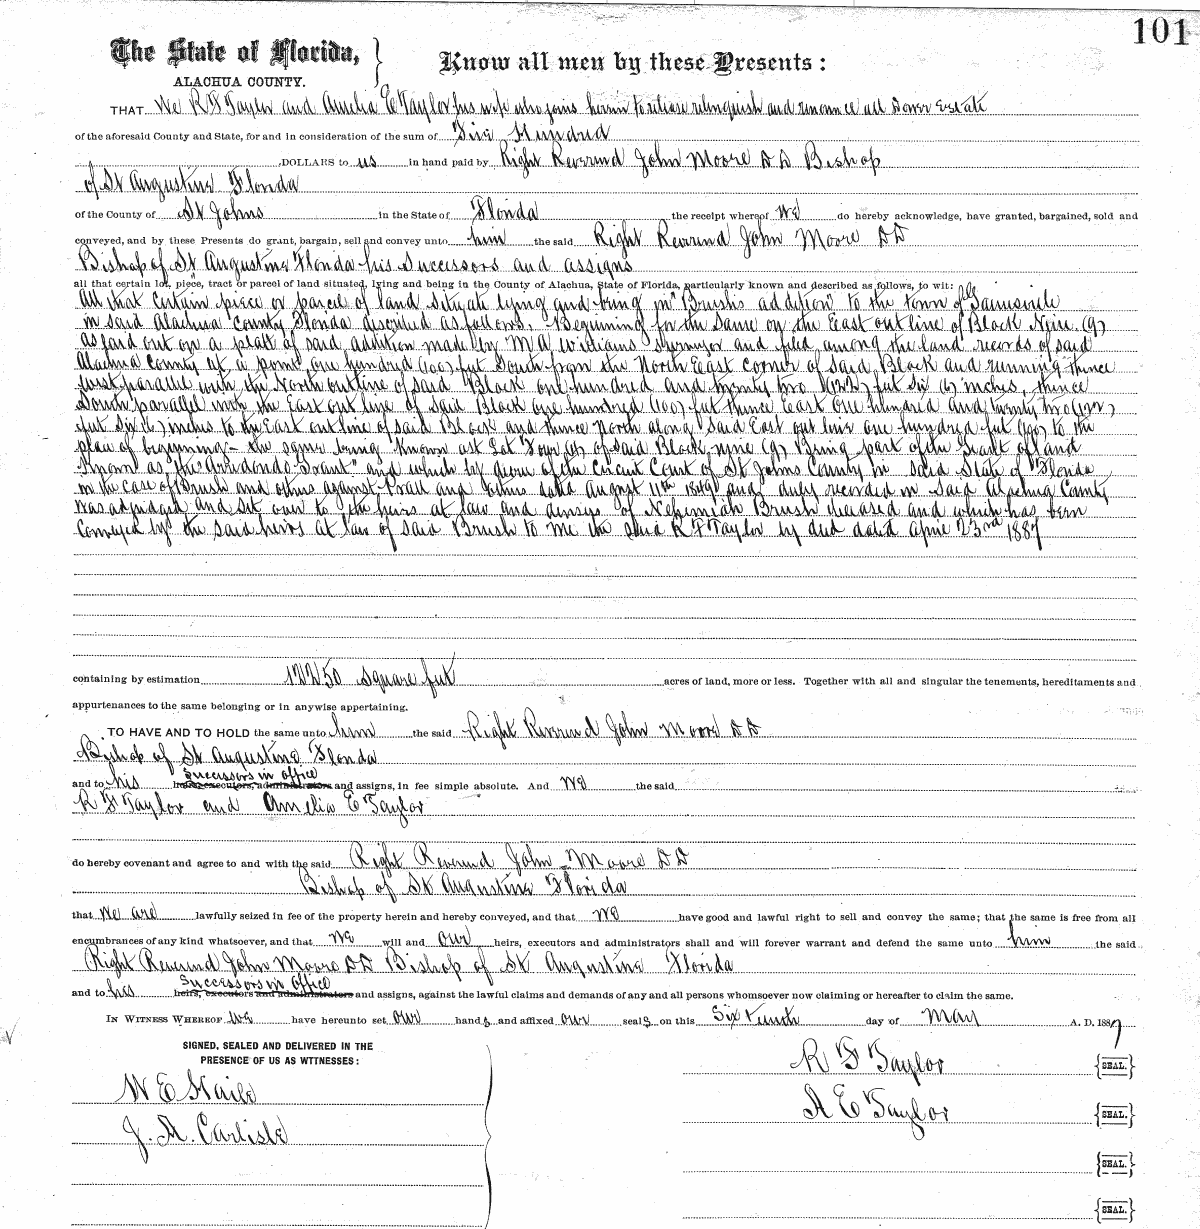 101
The State of Florida,
ALACHUA COUNTY.
Know all men by these Presents:
THAT We R F Taylor and Amelia E Taylor his wife who joins herein to release relinquish and renounce all Dower Estate
of the aforesaid County and State, for and in consideration of the sum of Five Hundred
DOLLARS to us in hand paid by Right Reverend John Moore D D Bishop
of St Augustine Florida
of the County of St Johns in the State of Florida the receipt whereof We do hereby acknowledge, have granted, bargained, sold and
conveyed, and by these Presents do grant, bargain, sell and convey unto him the said Right Reverend John Moore D D
Bishop of St Augustine Florida his Successors and assigns
all that certain lot, piece, tract or parcel of land situated, lying and being in the County of Alachua, State of Florida, particularly known and described as follows, to wit:
All that certain piece or parcel of land situate lying and being in Brush's addition to the town of Gainesville
in said Alachua County Florida described as follows. Beginning for the same on the East out line of Block Nine (9)
as laid out on a plat of said addition made by M A Williams Surveyor and filed among the land records of said
Alachua County at a point one hundred (100) feet South from the North East corner of said Block and running thence
West parallel with the North out line of said Block one hundred and twenty two (122) feet Six (6) inches, thence
South parallel with the East out line of said Block one hundred (100) feet thence East One hundred and twenty two (122)
feet Six (6) inches to the East out line of said Block and thence North along said East out line one hundred feet (100) to the
place of beginning - the same being known as Lot Four (4) of said Block nine (9) Being part of the Grant of land
Known as "the Arredondo Grant" and which by decree of the Circuit Court of St Johns County in said State of Florida
in the case of Brush and others against Prall and others dated August 11th 1849 and duly recorded in said Alachua County
was adjudged and set over to the heirs at law and devisees of Nehemiah Brush deceased and which has been
Conveyed by the said heirs at law of said Brush to me the said R F Taylor by deed dated April 23rd 1887
containing by estimation 12250 square feet acres of land, more or less. Together with all and singular the tenements, hereditaments and
appurtenances to the same belonging or in anywise appertaining.
TO HAVE AND TO HOLD the same unto him the said Right Reverend John Moore D D
Bishop of St Augustine Florida
Successors in office
and to his heirs, executors, administrators and assigns, in fee simple absolute. And We the said
R F Taylor and Amelia E Taylor
do hereby covenant and agree to and with the said Right Reverend John Moore D D
Bishop of St Augustine Florida
that We are lawfully seized in fee of the property herein and hereby conveyed, and that We have good and lawful right to sell and convey the same; that the same is free from all
encumbrances of any kind whatsoever, and that We will and our heirs, executors and administrators shall and will forever warrant and defend the same unto him the said
Right Reverend John Moore D D Bishop of St Augustine Florida
Successors in office
and to his heirs, executors and administrators and assigns, against the lawful claims and demands of any and all persons whomsoever now claiming or hereafter to claim the same.
IN WITNESS WHEREOF We have hereunto set our hands and affixed our seals on this Sixteenth day of May A. D. 1887
SIGNED, SEALED AND DELIVERED IN THE
PRESENCE OF US AS WITNESSES:
R F Taylor {SEAL.}
W E Haile
A E Taylor {SEAL.}
J. A. Carlisle
{SEAL.}
{SEAL.}